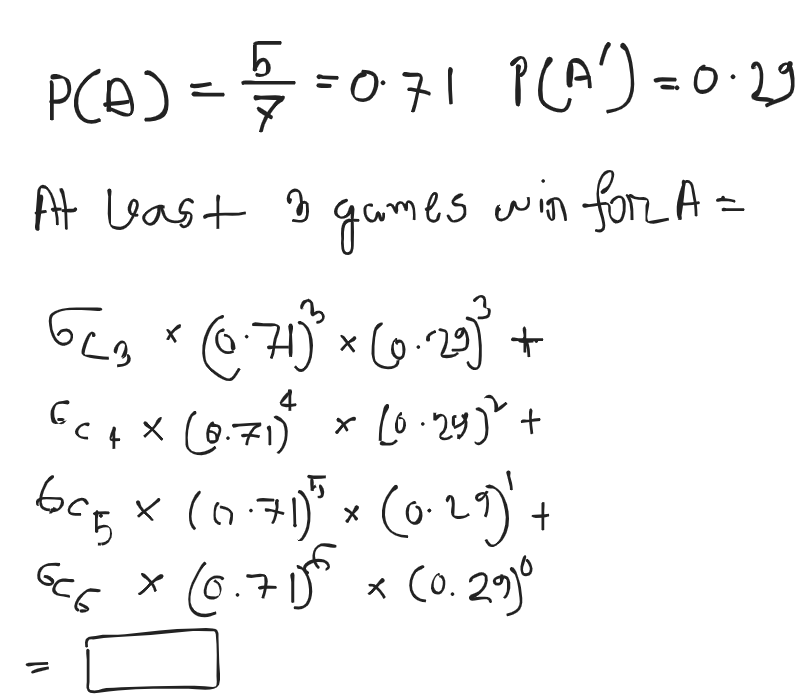 P(A) = 5/7 = 0.71 P(A') = 0.29
At least 3 games win for A =
6C₃ × (0.71)³ × (0.29)³ +
6C₄ × (0.71)⁴ × (0.29)² +
6C₅ × (0.71)⁵ × (0.29)¹ +
6C₆ × (0.71)⁶ × (0.29)⁰
=